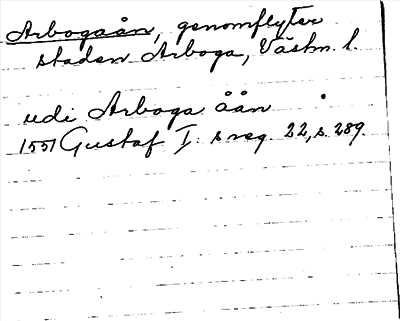 Arbogaån, genomflyter
staden Arboga, Västm. l.
udi Arboga åån
1551 Gustaf I:s reg. 22, s. 289.